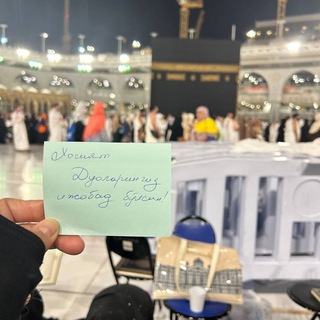 Хосият
Дуоларингиз
ижобад бўлсин!